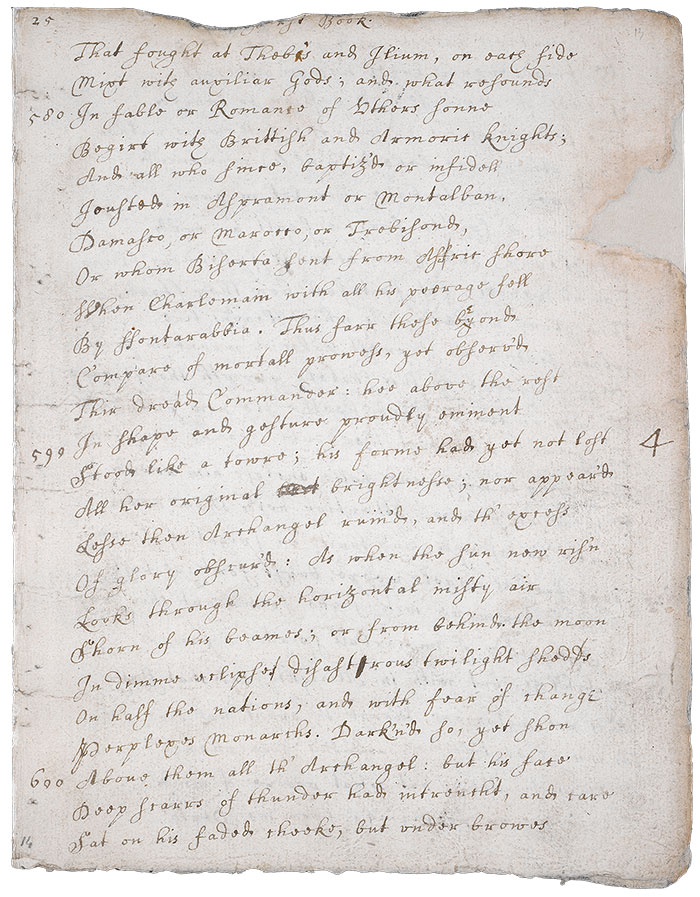 25
Book.
That fought at Theb's and Ilium, on each side
Mixt with auxiliar Gods; and what resounds
580 In fable or Romance of Uthers sonne
Begirt with Brittish and Armoric knights;
And all who since, baptiz'd or infidell
Jousted in Aspramont or Montalban,
Damasco, or Marocco, or Trebisond,
Or whom Biserta sent from Affric shore
When Charlemain with all his peerage fell
By ffontarabbia. Thus farr these beyond
Compare of mortall prowess, yet observ'd
Thir dread Commander: hee above the rest
In shape and gesture proudly eminent
590 Stood like a towre; his forme had yet not lost 4
All her original brightnesse; nor appear'd
Lesse then Archangel ruin'd, and th' excess
Of glory obscur'd: As when the sun new ris'n
Looks through the horizontal misty air
Shorn of his beames; or from behind the moon
In dimme eclipse disastrous twilight shedds
On half the nations, and with fear of change
Perplexes Monarchs. Dark'n'd so, yet shon
600 Above them all th' Archangel: but his face
Deep scarrs of thunder had intrencht, and care
14 Sat on his faded cheeke, but under browes